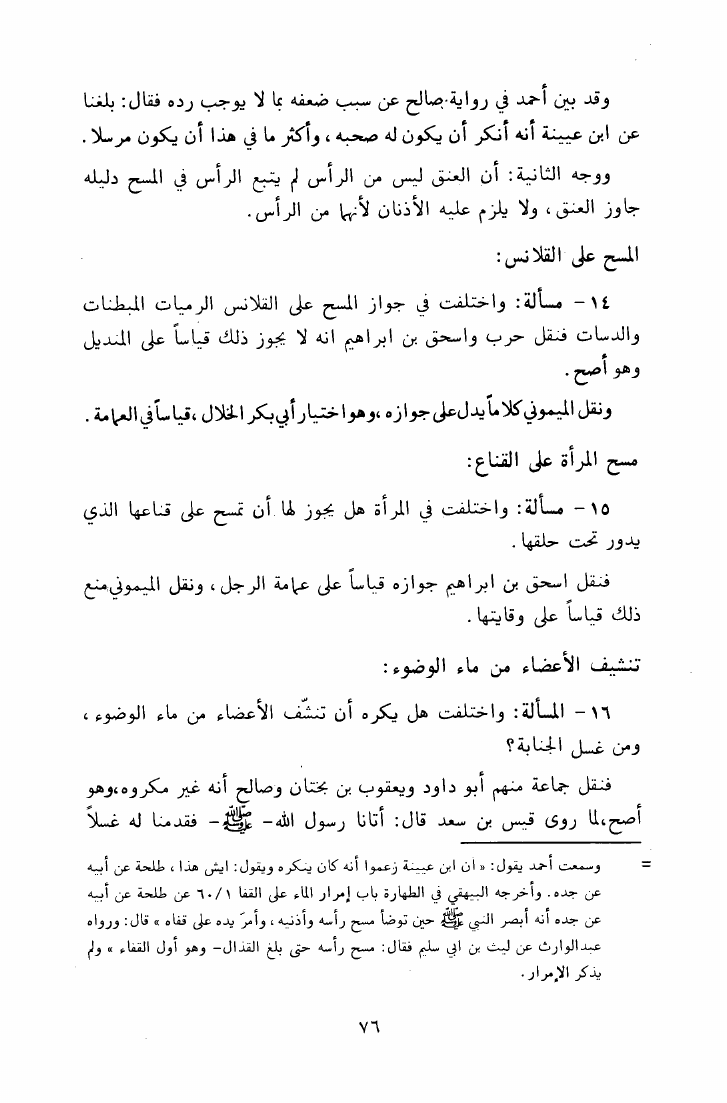 وقد بين أحمد في رواية صالح عن سبب ضعفه بما لا يوجب رده فقال: بلغنا
عن ابن عيينة أنه أنكر أن يكون له صحبه، وأكثر ما في هذا أن يكون مرسلا.
ووجه الثانية: أن العنق ليس من الرأس لم يتبع الرأس في المسح دليله
جاوز العنق، ولا يلزم عليه الأذنان لأنهما من الرأس.
المسح على القلانس:
١٤ - مسألة: واختلفت في جواز المسح على القلانس الرميات المبطنات
والدسات فنقل حرب واسحق بن ابراهيم انه لا يجوز ذلك قياساً على المنديل
وهو أصح.
ونقل الميموني كلاماً يدل على جوازه، وهو اختيار أبي بكر الخلال، قياساً في العمامة.
مسح المرأة على القناع:
١٥ - مسألة: واختلفت في المرأة هل يجوز لها أن تمسح على قناعها الذي
يدور تحت حلقها.
فنقل اسحق بن ابراهيم جوازه قياساً على عمامة الرجل، ونقل الميموني منع
ذلك قياساً على وقايتها.
تنشيف الأعضاء من ماء الوضوء:
١٦ - المسألة: واختلفت هل يكره أن تنشّف الأعضاء من ماء الوضوء،
ومن غسل الجنابة؟
فنقل جماعة منهم أبو داود ويعقوب بن بختان وصالح أنه غير مكروه، وهو
أصح، لما روى قيس بن سعد قال: أتانا رسول الله - ﷺ - فقدمنا له غسلاً
= وسمعت أحمد يقول: «ان ابن عيينة زعموا أنه كان ينكره ويقول: ايش هذا، طلحة عن أبيه
عن جده. وأخرجه البيهقي في الطهارة باب إمرار الماء على القفا ٦٠/١ عن طلحة عن أبيه
عن جده أنه أبصر النبي ﷺ حين توضأ مسح رأسه وأذنيه، وأمرّ يده على قفاه» قال: ورواه
عبد الوارث عن ليث بن ابي سليم فقال: مسح رأسه حتى بلغ القذال - وهو أول القفاء» ولم
يذكر الإمرار.
٧٦